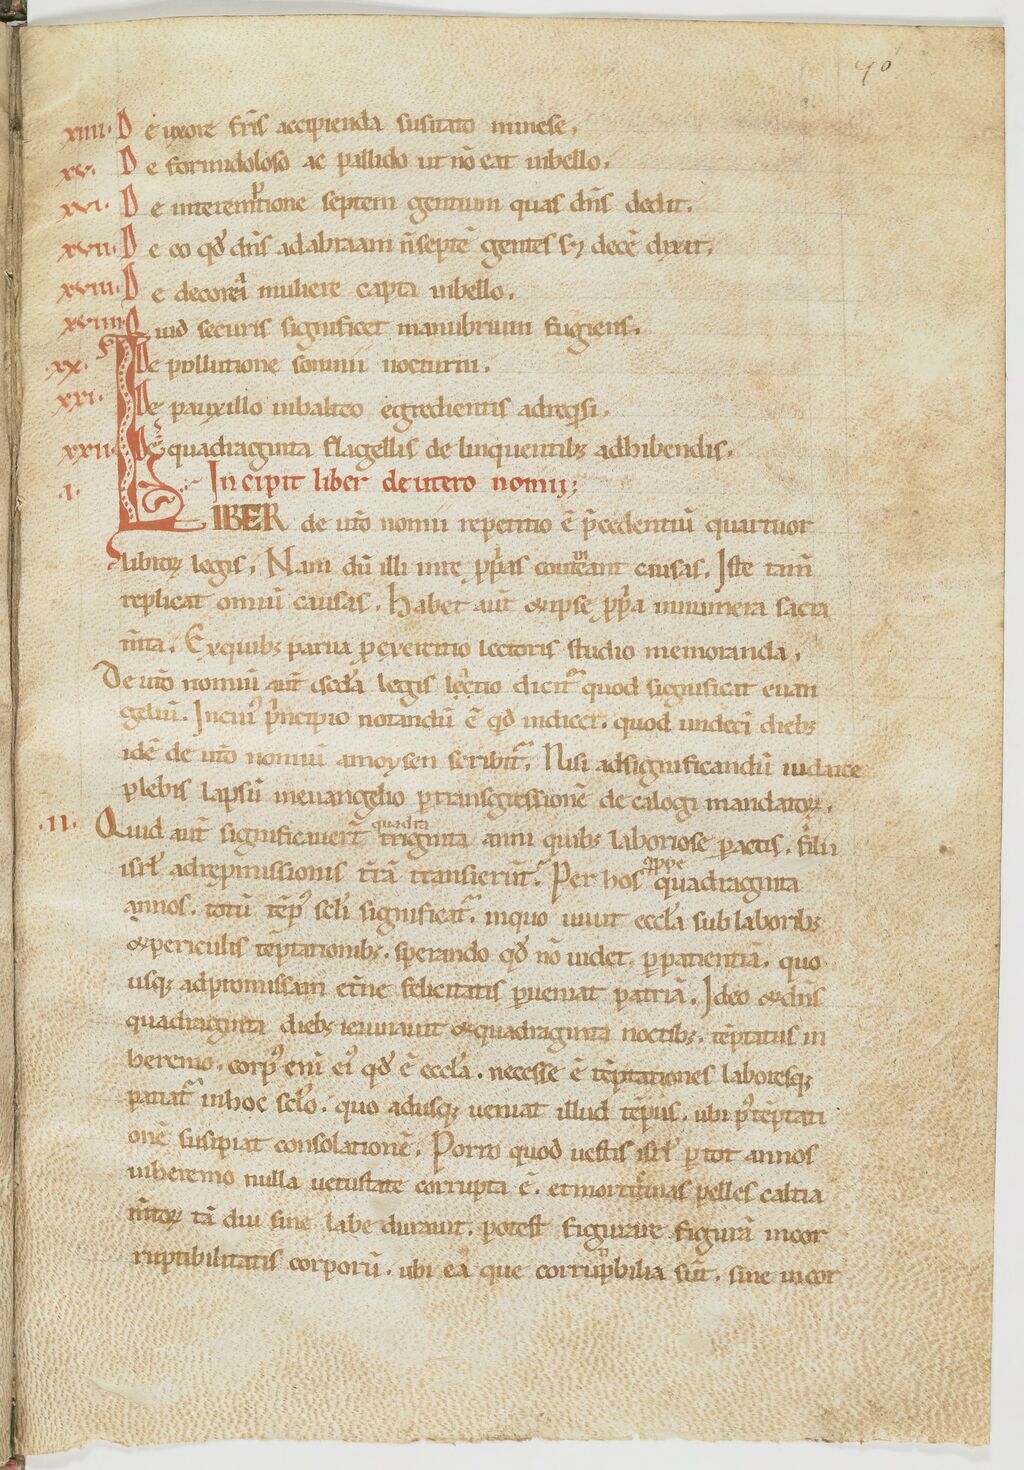 90
xiiii. De uxore fr̄is accipienda suscitato inınese.
xv. De formidoloso ac pallido ut nō eat inbello.
xvi. De interemptione septem gentium quas dn̄s dedit.
xvii. De eo qd̄ dn̄s adabraam n̄ septē gentes sꝫ decē dixit.
xviii. De decora muliere capta inbello.
xviiii. Quid securis significet manubrium fugiens.
xx. De pollutione somnii nocturni.
xxi. De pauxillo inbalteo egredientis adreqsi.
xxii. De quadraginta flagellis delinquentibꝫ adhibendis.
.i. Incipit liber deutero nomii;
LIBER de ut̄o nomii repetitio ē p̄cedentiū quattuor
libroꝝ legis. Nam dū illi in re ꝓprias contineant causas. Iste tam̄
replicat omniū causas. Habet aut̄ & ipse ꝓpria innumera sacra
m̄ta. Ex quibꝫ parua ꝓ exercitio lectoris studio memoranda.
De ut̄o nomiū aut̄ scd̄a legis lectio dicit᷑ quod significat euan
geliū. In cuiꝰ principio notandū ē qd̄ indicet. quod undeci diebꝫ
idē de ut̄o nomiū amoysen scribit᷑. Nisi adsignificandū iudaice
plebis lapsū ineuangelio ꝑ transgressionē decalogi mandatoꝝ.
.ii. Quid aut̄ significauer̄t quadra triginta anni quibꝫ laboriose ꝑactis. filii
isrl̄ adrepmissionis t̄rā transierun̄t. Per hos qippe quadraginta
annos. totū tēpꝰ scl̄i significat᷑. inquo uiuit eccl̄a sub laboribꝫ
& periculis tēptationibꝫ. sperando qd̄ nō uidet. ꝑ patientiā. quo
usqꝫ adpromissam et̄ne felicitatis ꝑueniat patriā. Ideo & dn̄s
quadraginta diebꝫ ieiunauit & quadraginta noctibꝫ. tēptatus in
heremo. corpꝰ enī eiꝰ qd̄ ē eccl̄a. necesse ē tēptationes laboresqꝫ
patiat᷑ inhoc scl̄o. quo adusqꝫ ueniat illud tēpus. ubi pꝰ tēptati
onē suscipiat consolationē. Porro quod uestis isrl̄ ꝑ tot annos
inheremo nulla uetustate corrupta ē. et morticinas pelles caltia
m̄toꝝ tā diu sine labe durauit. potest figurare figurā incor
ruptibilitatis corporū. ubi ea que corruptibilia sūt. sine incor